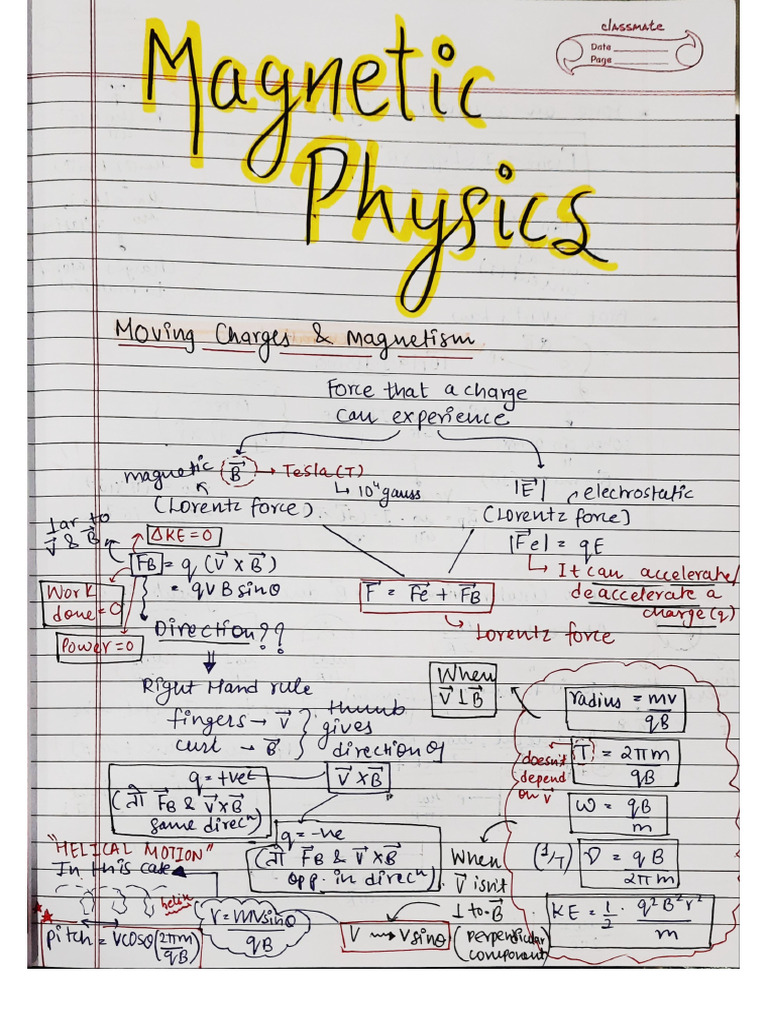 classmate
Date
Page
Magnetic
Physics
Moving Charges & Magnetism
Force that a charge
can experience
magnetic B⃗ → Tesla (T)
↳ 10⁴ gauss
(Lorentz force)
|E⃗| electrostatic
(Lorentz force)
|F⃗e| = qE
↳ It can accelerate/
deaccelerate a
charge (q)
⊥ar to
V⃗ & B⃗
ΔKE = 0
FB = q (V⃗ × B⃗)
= qVB sinθ
Work
done = 0
Power = 0
F⃗ = F⃗e + F⃗B
↳ Lorentz force
Direction??
⇓
Right Hand rule
fingers → V⃗
curl → B⃗
thumb
gives
direction of
V⃗ × B⃗
q = +ve
(तो F⃗B & V⃗×B⃗
same direcⁿ)
q = -ve
(तो F⃗B & V⃗×B⃗
opp. in direcⁿ)
When
V⃗ ⊥ B⃗
radius = mv/qB
doesn't
depend
on V⃗
T = 2πm/qB
ω = qB/m
(1/T) ν = qB/2πm
KE = 1/2 · q²B²r²/m
When
V⃗ isn't
⊥ to B⃗
(perpendicular
component)
V ⟿ V sinθ
r = mVsinθ/qB
"HELICAL MOTION"
In this case
helix
pitch = Vcosθ (2πm/qB)